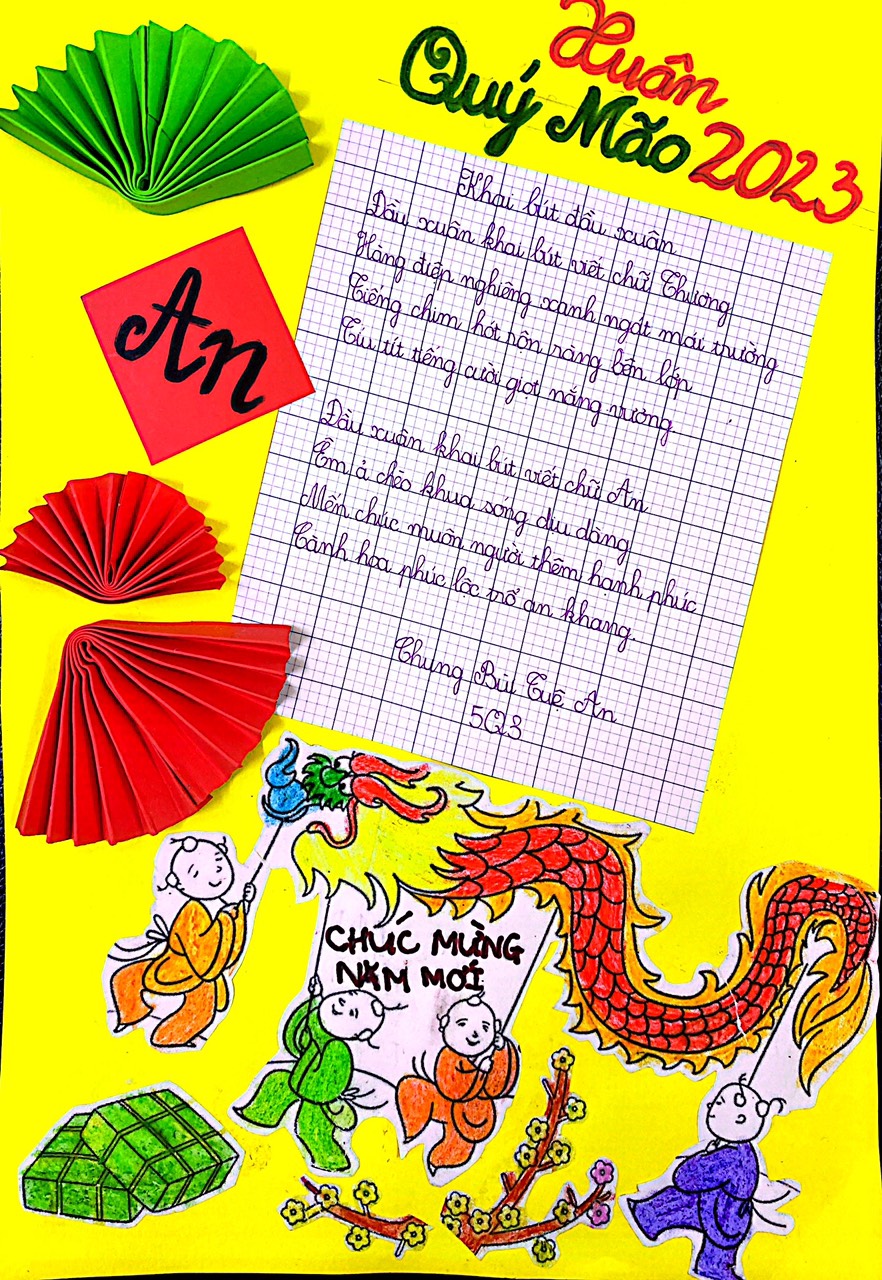 Xuân
Quý Mão 2023
Khai bút đầu xuân
Đầu xuân khai bút viết chữ Thương
Hàng điệp nghiêng xanh ngát mái trường
Tiếng chim hót rộn ràng bên lớp
Tíu tít tiếng cười giọt nắng vương
Đầu xuân khai bút viết chữ An
Êm ả chèo khua sóng dịu dàng
Mến chúc muôn người thêm hạnh phúc
Cành hoa phúc lộc trổ an khang.
Chung Bùi Tuệ An
5Q3
An
CHÚC MỪNG
NĂM MỚI